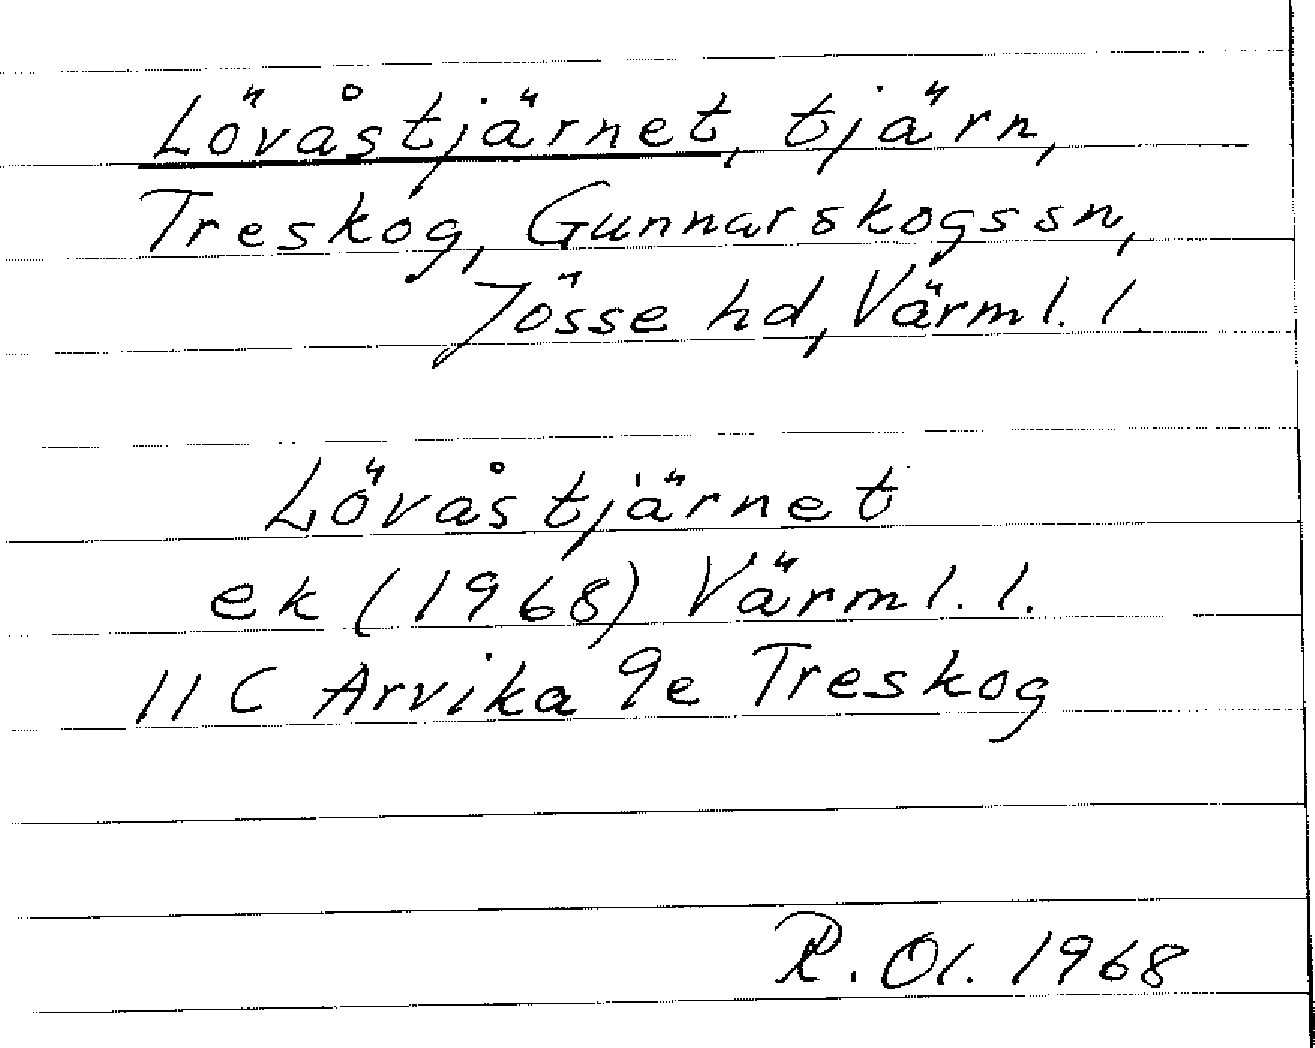 Lövåstjärnet, tjärn,
Treskog, Gunnarskogs sn,
Jösse hd, Värml. l.
Lövåstjärnet
ek (1968) Värml. l.
11 C Arvika 9e Treskog
R. Ol. 1968